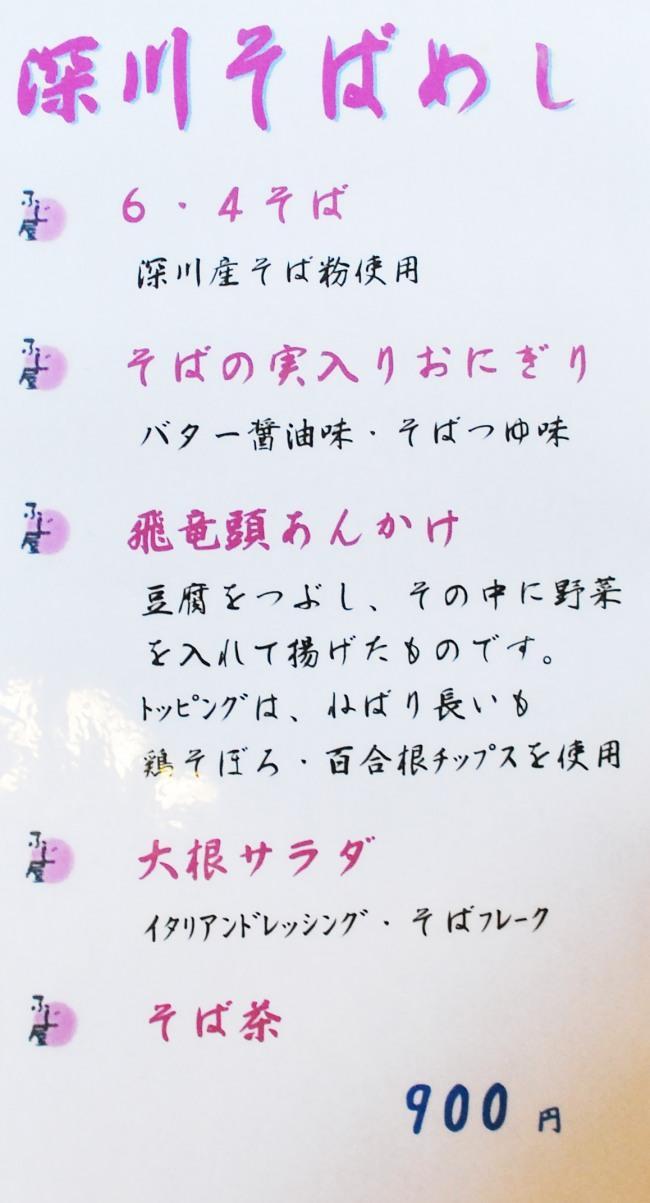 深川そばめし
ふじ屋
6・4そば
深川産そば粉使用
ふじ屋
そばの実入りおにぎり
バター醤油味・そばつゆ味
ふじ屋
飛竜頭あんかけ
豆腐をつぶし、その中に野菜
を入れて揚げたものです。
トッピングは、ねばり長いも
鶏そぼろ・百合根チップスを使用
ふじ屋
大根サラダ
イタリアンドレッシング・そばフレーク
ふじ屋
そば茶
900円